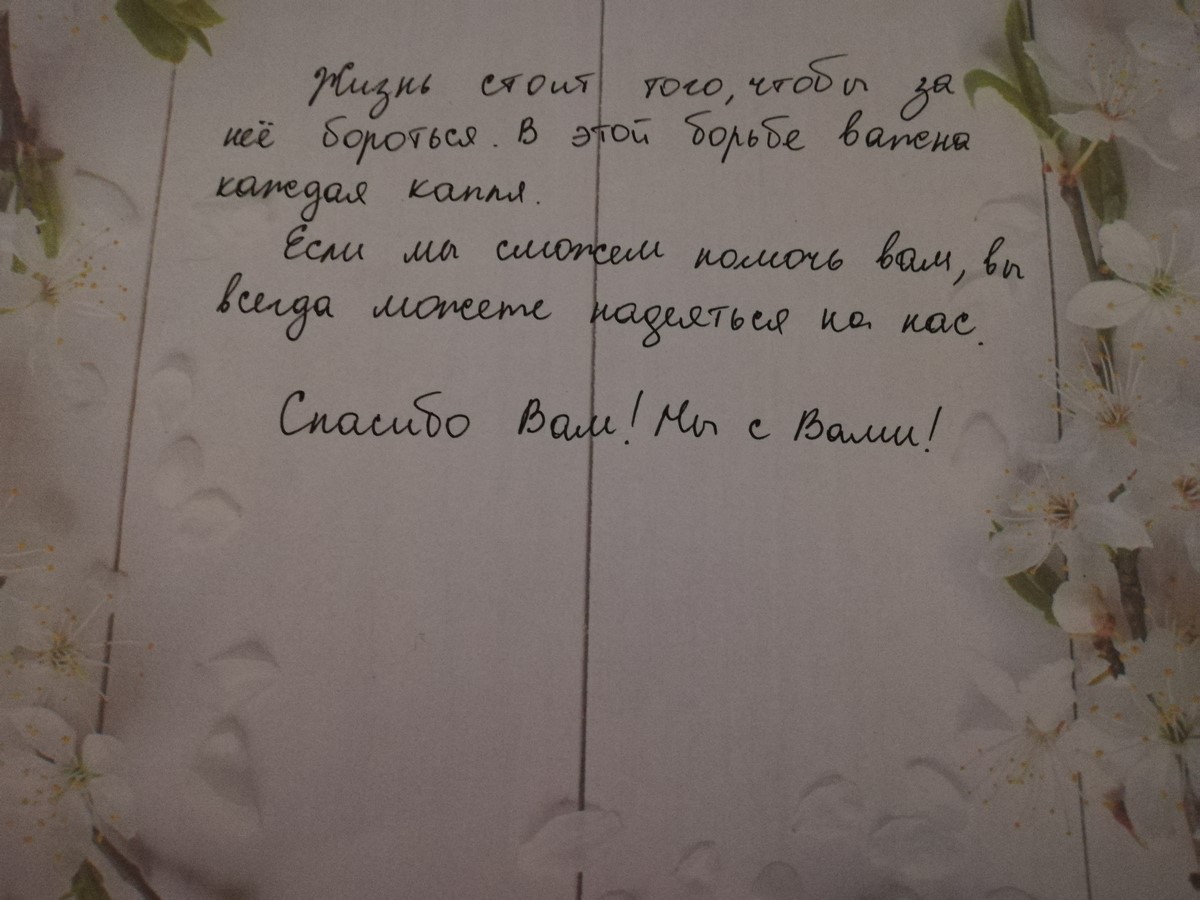 Жизнь стоит того, чтобы за
неё бороться. В этой борьбе важна
каждая капля.
Если мы сможем помочь вам, вы
всегда можете надеяться на нас.
Спасибо Вам! Мы с Вами!